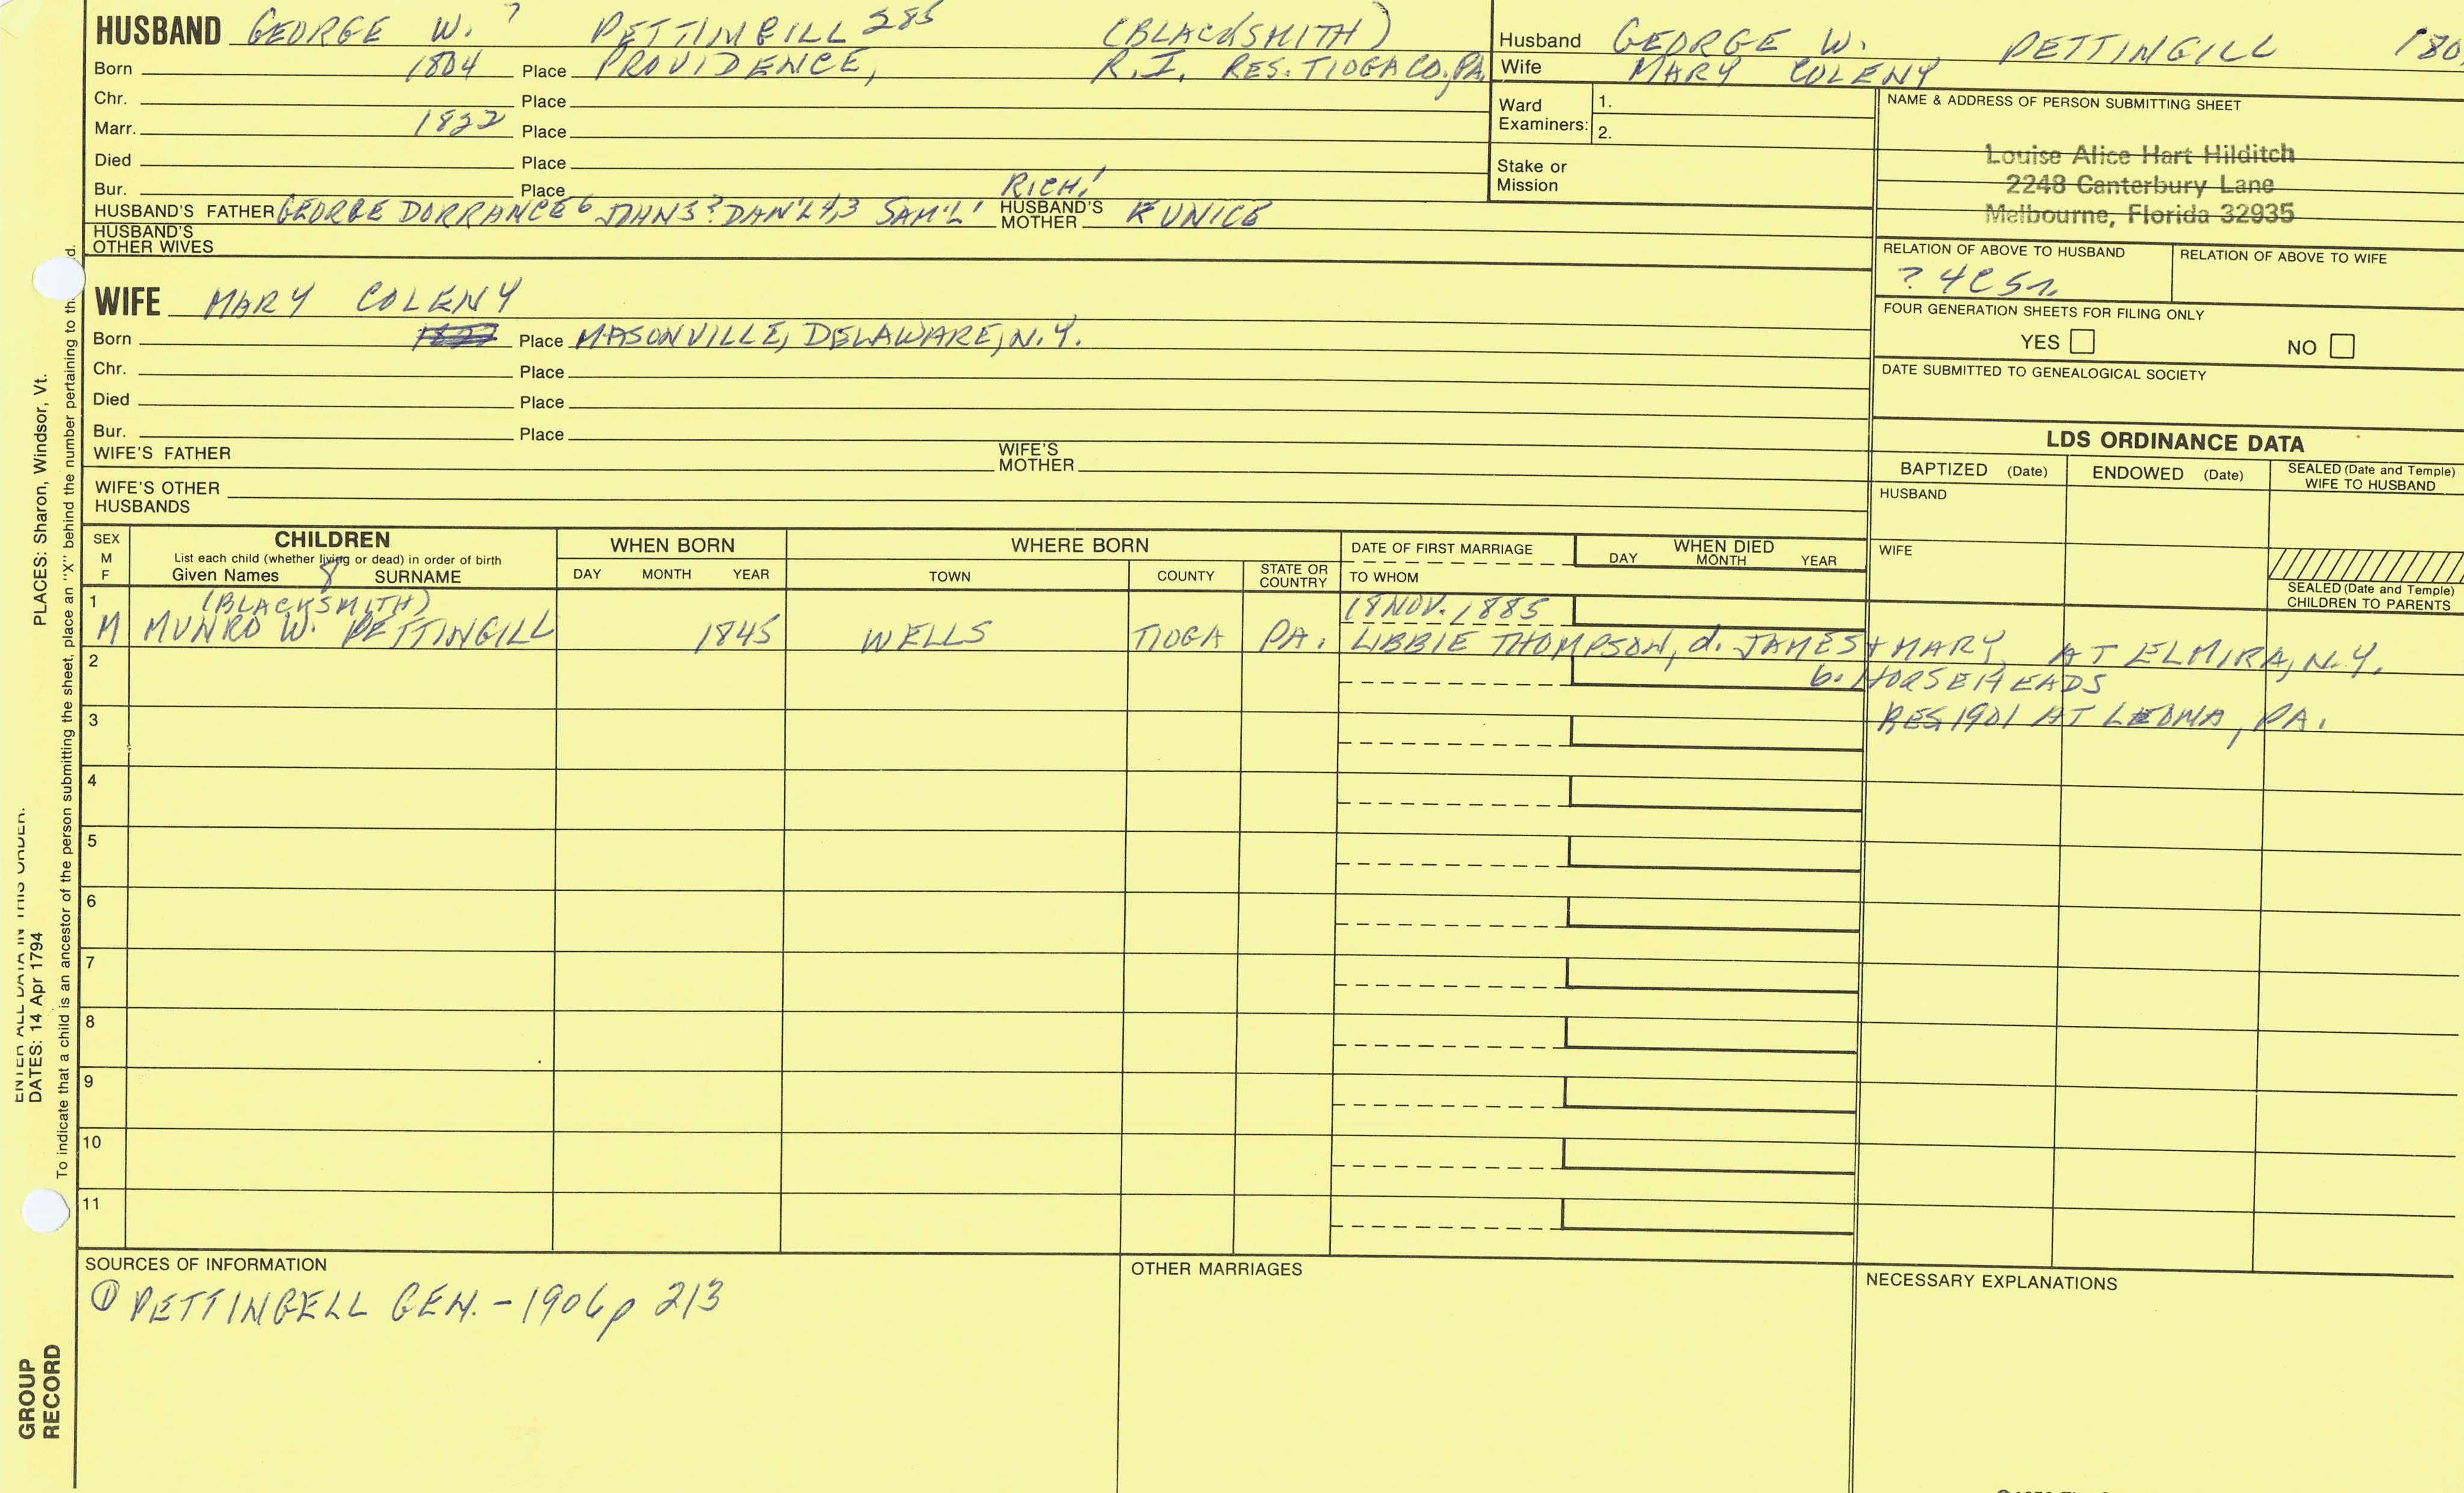 HUSBAND GEORGE W. 7 PETTINGILL 285 (BLACKSMITH)
Born 1804 Place PROVIDENCE, R.I. RES. TIOGA CO., PA.
Chr. Place
Marr. 1822 Place
Died Place
Bur. Place
RICH.1
HUSBAND'S FATHER GEORGE DORRANCE6 JOHN5? DAN'L4,3 SAM'L1 HUSBAND'S MOTHER EUNICE
HUSBAND'S OTHER WIVES
Husband GEORGE W. PETTINGILL 180
Wife MARY COLENY
Ward Examiners: 1.
2.
Stake or Mission
NAME & ADDRESS OF PERSON SUBMITTING SHEET
Louise Alice Hart Hilditch
2248 Canterbury Lane
Melbourne, Florida 32935
RELATION OF ABOVE TO HUSBAND RELATION OF ABOVE TO WIFE
? 4C5r.
FOUR GENERATION SHEETS FOR FILING ONLY
YES NO
DATE SUBMITTED TO GENEALOGICAL SOCIETY
WIFE MARY COLENY
Born Place MASONVILLE, DELAWARE, N.Y.
Chr. Place
Died Place
Bur. Place
WIFE'S FATHER WIFE'S MOTHER
WIFE'S OTHER HUSBANDS
LDS ORDINANCE DATA
BAPTIZED (Date) ENDOWED (Date) SEALED (Date and Temple) WIFE TO HUSBAND
HUSBAND
WIFE
SEALED (Date and Temple) CHILDREN TO PARENTS
SEX M F CHILDREN WHEN BORN WHERE BORN DATE OF FIRST MARRIAGE WHEN DIED
List each child (whether living or dead) in order of birth
Given Names 8 SURNAME DAY MONTH YEAR TOWN COUNTY STATE OR COUNTRY TO WHOM DAY MONTH YEAR
1 (BLACKSMITH) 18 NOV. 1885
M MUNRO W. PETTINGILL 1845 WELLS TIOGA PA. LIBBIE THOMPSON, d. JAMES + MARY, AT ELMIRA, N.Y.
2 b. HORSEHEADS
3 RES 1901 AT LEONA, PA.
4
5
6
7
8
9
10
11
SOURCES OF INFORMATION OTHER MARRIAGES NECESSARY EXPLANATIONS
① PETTINGELL GEN. - 1906 p 213
ENTER ALL DATA IN THIS ORDER:
DATES: 14 Apr 1794 PLACES: Sharon, Windsor, Vt.
To indicate that a child is an ancestor of the person submitting the sheet, place an "X" behind the number pertaining to th d.
GROUP
RECORD